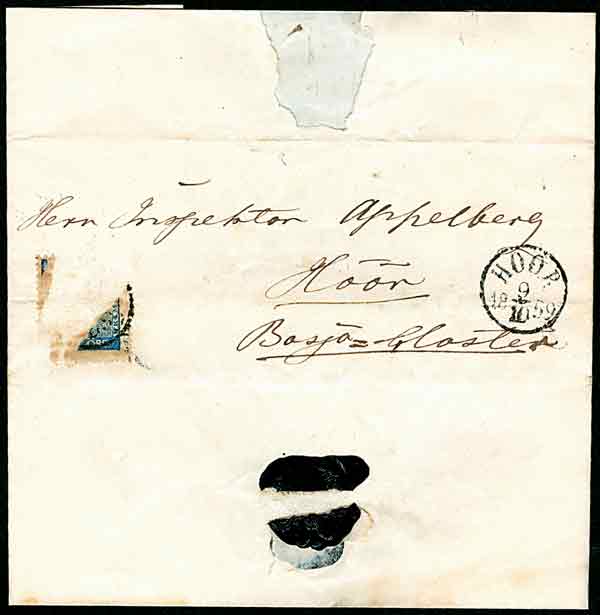 Herr Inspektor Appelberg
Höör
Bosjö=Kloster
HÖÖR
9
18 59
10